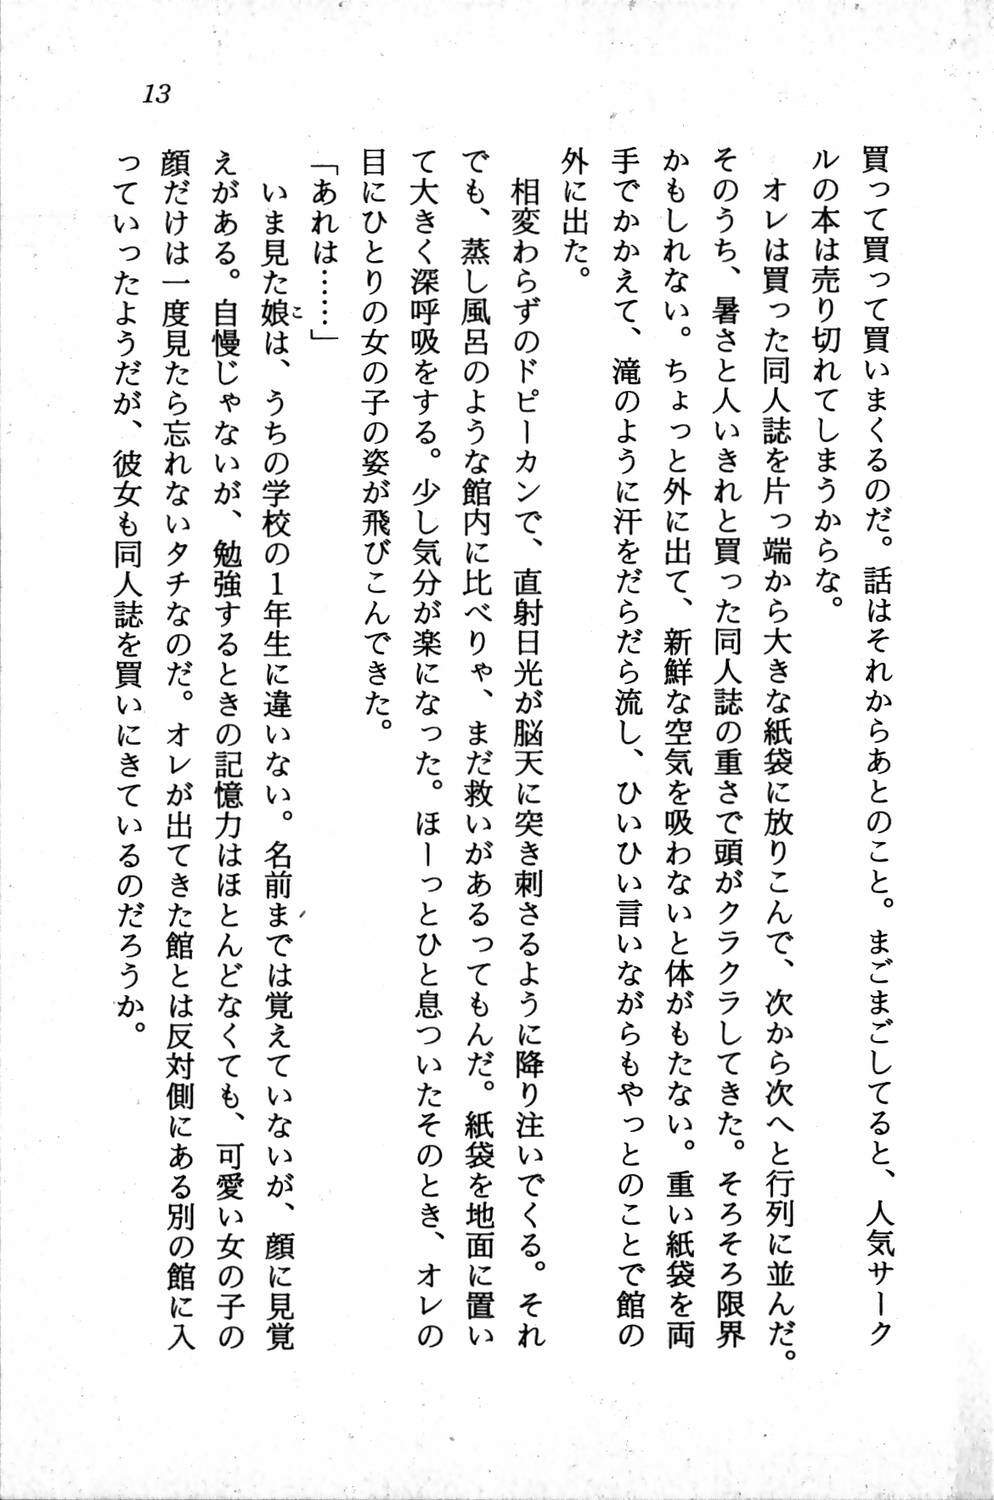 13
買って買って買いまくるのだ。話はそれからあとのこと。まごまごしてると、人気サーク
ルの本は売り切れてしまうからな。
オレは買った同人誌を片っ端から大きな紙袋に放りこんで、次から次へと行列に並んだ。
そのうち、暑さと人いきれと買った同人誌の重さで頭がクラクラしてきた。そろそろ限界
かもしれない。ちょっと外に出て、新鮮な空気を吸わないと体がもたない。重い紙袋を両
手でかかえて、滝のように汗をだらだら流し、ひいひい言いながらもやっとのことで館の
外に出た。
相変わらずのドピーカンで、直射日光が脳天に突き刺さるように降り注いでくる。それ
でも、蒸し風呂のような館内に比べりゃ、まだ救いがあるってもんだ。紙袋を地面に置い
て大きく深呼吸をする。少し気分が楽になった。ほーっとひと息ついたそのとき、オレの
目にひとりの女の子の姿が飛びこんできた。
「あれは……」
いま見た娘こは、うちの学校の1年生に違いない。名前までは覚えていないが、顔に見覚
えがある。自慢じゃないが、勉強するときの記憶力はほとんどなくても、可愛い女の子の
顔だけは一度見たら忘れないタチなのだ。オレが出てきた館とは反対側にある別の館に入
っていったようだが、彼女も同人誌を買いにきているのだろうか。